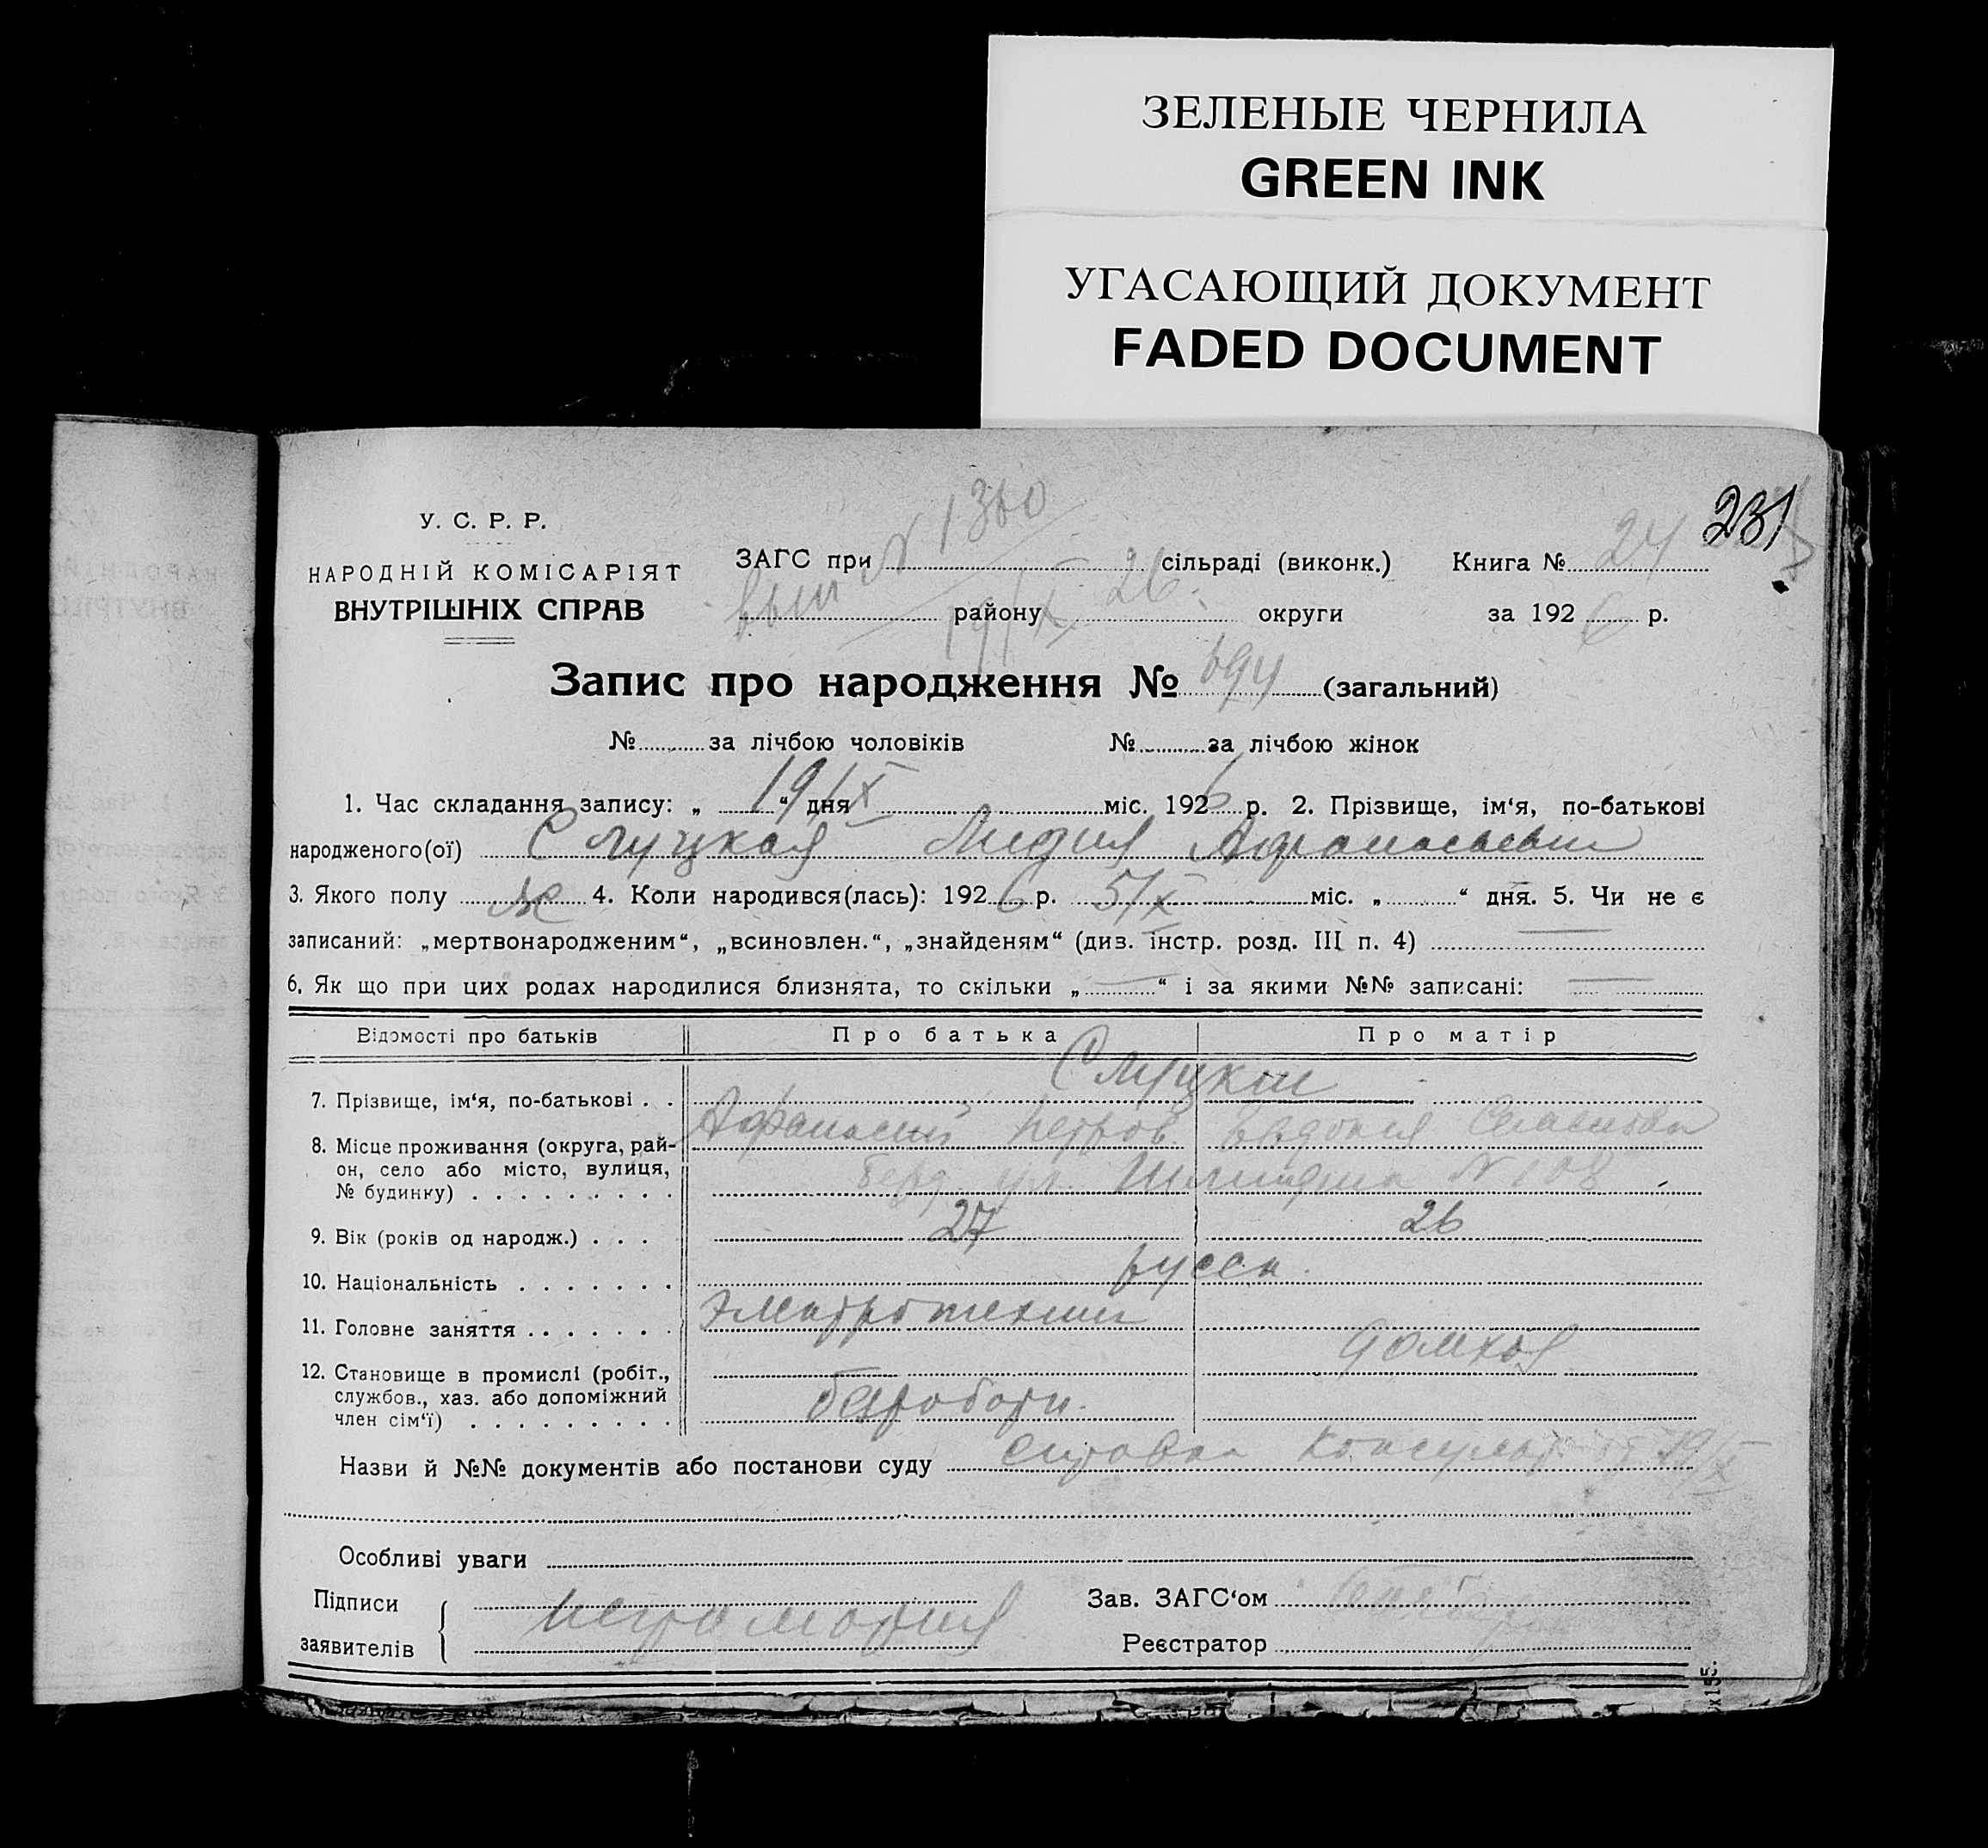 ЗЕЛЕНЫЕ ЧЕРНИЛА
GREEN INK
УГАСАЮЩИЙ ДОКУМЕНТ
FADED DOCUMENT
231
У. С. Р. Р.
НАРОДНІЙ КОМІСАРІЯТ
ВНУТРІШНІХ СПРАВ
ЗАГС при N 1360 сільраді (виконк.) Книга № 24
вып 19/IX 26. району округи за 1926 р.
Запис про народження № 694 (загальний)
№ за лічбою чоловіків № за лічбою жінок
1. Час складання запису: „ 19/IX “ дня міс. 1926 р. 2. Прізвище, ім‘я, по-батькові
народженого(ої) Слуцкая Лидия Афанасьевна
3. Якого полу ж 4. Коли народився(лась): 1926 р. 5/IX міс. „ “ дня. 5. Чи не є
записаний: „мертвонародженим“, „всиновлен.“, „знайденям“ (див. інстр. розд. III п. 4)
6. Як що при цих родах народилися близнята, то скільки „ — “ і за якими №№ записані: —
Відомості про батьків Про батька Про матір
Слуцкие
7. Прізвище, ім‘я, по-батькові . . Афанасий Петров. Евдокия
8. Місце проживання (округа, рай-
он, село або місто, вулиця,
№ будинку) . . . . . . . . . ул. Шмидта N 108
9. Вік (років од народж.) . . . 27 26
10. Національність . . . . . . . русск.
11. Головне заняття . . . . . . . Электротехник домхоз
12. Становище в промислі (робіт.,
службов., хаз. або допоміжний
член сім‘ї) . . . . . . . . . безработн.
Назви й №№ документів або постанови суду справка Консульт. от 19/IX
Особливі уваги
Підписи
заявителів
Зав. ЗАГС‘ом
Реєстратор